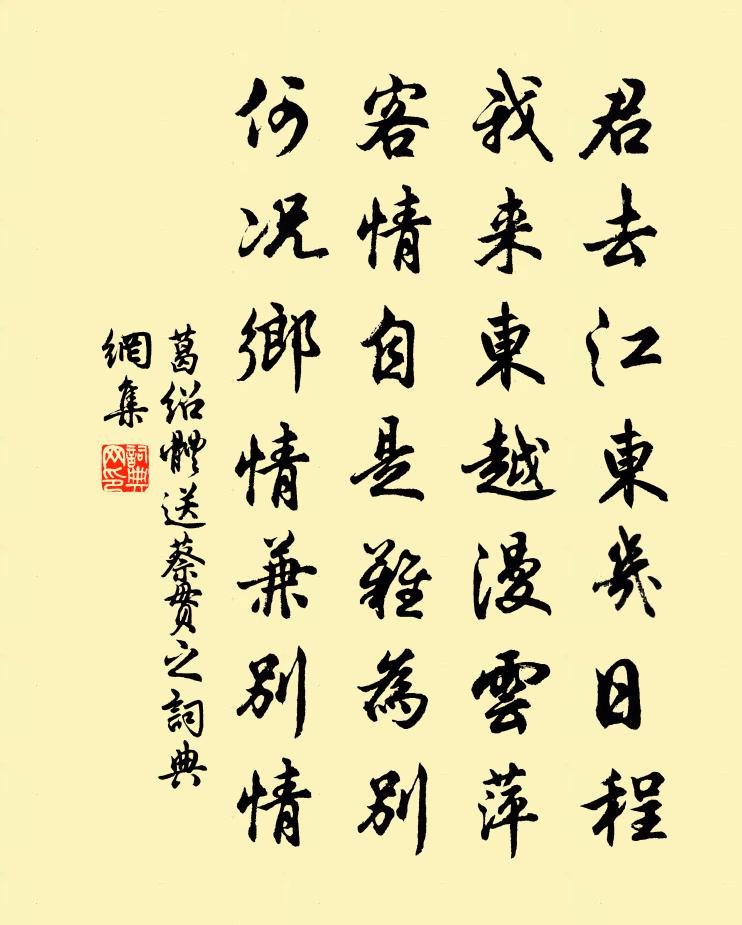 君去江東幾日程
我来東越漫雲萍
客情自是難為別
何况鄉情兼別情
葛紹體送蔡貫之詞典
網集
詞典
网印